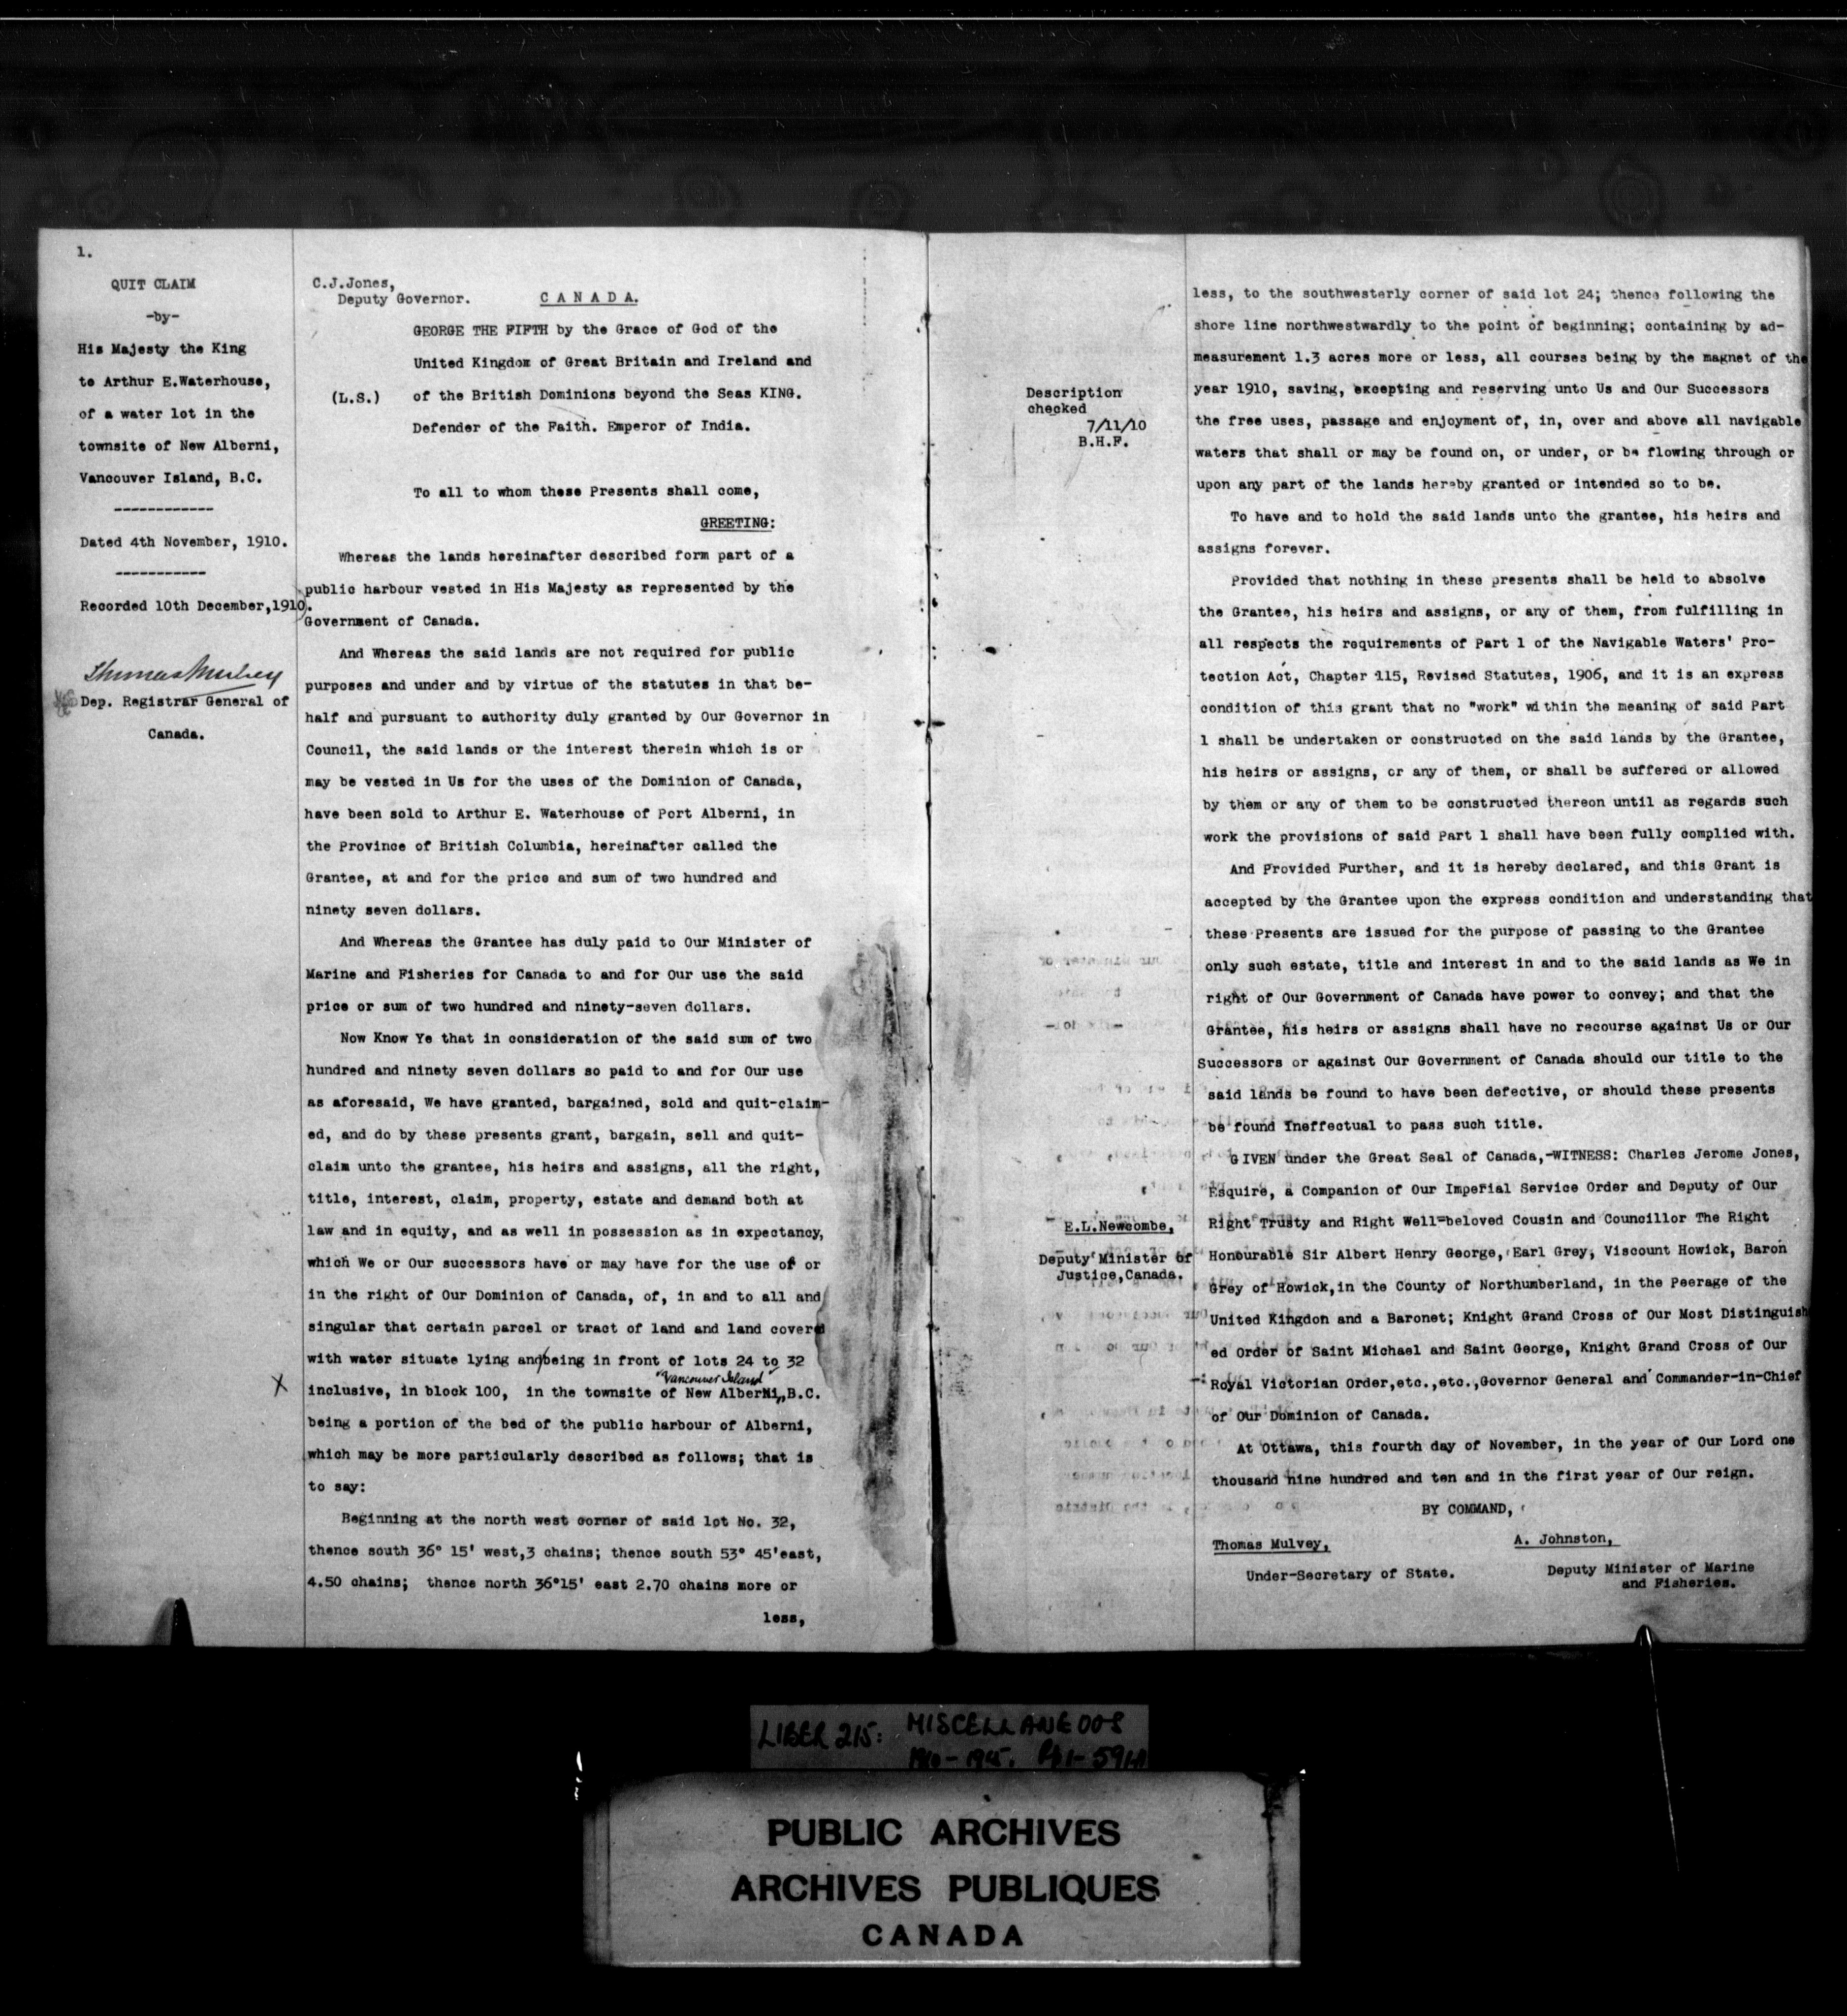 1.
QUIT CLAIM
-by-
His Majesty the King
to Arthur E.Waterhouse,
of a water lot in the
townsite of New Alberni,
Vancouver Island, B.C.
------------
Dated 4th November, 1910.
-----------
Recorded 10th December,1910.
Thomas Mulvey
Dep. Registrar General of
Canada.
C.J.Jones,
Deputy Governor.
C A N A D A.
GEORGE THE FIFTH by the Grace of God of the
United Kingdom of Great Britain and Ireland and
(L.S.) of the British Dominions beyond the Seas KING.
Defender of the Faith. Emperor of India.
To all to whom these Presents shall come,
GREETING:
Whereas the lands hereinafter described form part of a
public harbour vested in His Majesty as represented by the
Government of Canada.
And Whereas the said lands are not required for public
purposes and under and by virtue of the statutes in that be-
half and pursuant to authority duly granted by Our Governor in
Council, the said lands or the interest therein which is or
may be vested in Us for the uses of the Dominion of Canada,
have been sold to Arthur E. Waterhouse of Port Alberni, in
the Province of British Columbia, hereinafter called the
Grantee, at and for the price and sum of two hundred and
ninety seven dollars.
And Whereas the Grantee has duly paid to Our Minister of
Marine and Fisheries for Canada to and for Our use the said
price or sum of two hundred and ninety-seven dollars.
Now Know Ye that in consideration of the said sum of two
hundred and ninety seven dollars so paid to and for Our use
as aforesaid, We have granted, bargained, sold and quit-claim-
ed, and do by these presents grant, bargain, sell and quit-
claim unto the grantee, his heirs and assigns, all the right,
title, interest, claim, property, estate and demand both at
law and in equity, and as well in possession as in expectancy,
which We or Our successors have or may have for the use of or
in the right of Our Dominion of Canada, of, in and to all and
singular that certain parcel or tract of land and land covered
with water situate lying and/being in front of lots 24 to 32
Vancouver Island
X inclusive, in block 100, in the townsite of New Alberni,,B.C.
being a portion of the bed of the public harbour of Alberni,
which may be more particularly described as follows; that is
to say:
Beginning at the north west corner of said lot No. 32,
thence south 36° 15' west,3 chains; thence south 53° 45'east,
4.50 chains; thence north 36°15' east 2.70 chains more or
less,
Description
checked
7/11/10
B.H.F.
less, to the southwesterly corner of said lot 24; thence following the
shore line northwestwardly to the point of beginning; containing by ad-
measurement 1.3 acres more or less, all courses being by the magnet of the
year 1910, saving, excepting and reserving unto Us and Our Successors
the free uses, passage and enjoyment of, in, over and above all navigable
waters that shall or may be found on, or under, or be flowing through or
upon any part of the lands hereby granted or intended so to be.
To have and to hold the said lands unto the grantee, his heirs and
assigns forever.
Provided that nothing in these presents shall be held to absolve
the Grantee, his heirs and assigns, or any of them, from fulfilling in
all respects the requirements of Part 1 of the Navigable Waters' Pro-
tection Act, Chapter 115, Revised Statutes, 1906, and it is an express
condition of this grant that no "work" within the meaning of said Part
1 shall be undertaken or constructed on the said lands by the Grantee,
his heirs or assigns, or any of them, or shall be suffered or allowed
by them or any of them to be constructed thereon until as regards such
work the provisions of said Part 1 shall have been fully complied with.
And Provided Further, and it is hereby declared, and this Grant is
accepted by the Grantee upon the express condition and understanding that
these Presents are issued for the purpose of passing to the Grantee
only such estate, title and interest in and to the said lands as We in
right of Our Government of Canada have power to convey; and that the
Grantee, his heirs or assigns shall have no recourse against Us or Our
Successors or against Our Government of Canada should our title to the
said lands be found to have been defective, or should these presents
be found ineffectual to pass such title.
GIVEN under the Great Seal of Canada,-WITNESS: Charles Jerome Jones,
Esquire, a Companion of Our Imperial Service Order and Deputy of Our
Right Trusty and Right Well=beloved Cousin and Councillor The Right
Honourable Sir Albert Henry George, Earl Grey, Viscount Howick, Baron
Grey of Howick,in the County of Northumberland, in the Peerage of the
United Kingdon and a Baronet; Knight Grand Cross of Our Most Distinguish
ed Order of Saint Michael and Saint George, Knight Grand Cross of Our
Royal Victorian Order,etc.,etc.,Governor General and Commander-in-Chief
of Our Dominion of Canada.
At Ottawa, this fourth day of November, in the year of Our Lord one
thousand nine hundred and ten and in the first year of Our reign.
BY COMMAND,
E.L.Newcombe,
Deputy Minister of
Justice,Canada.
Thomas Mulvey,
Under-Secretary of State.
A. Johnston,
Deputy Minister of Marine
and Fisheries.
LIBER 215: MISCELLANEOUS
1910-1945.
PUBLIC ARCHIVES
ARCHIVES PUBLIQUES
CANADA